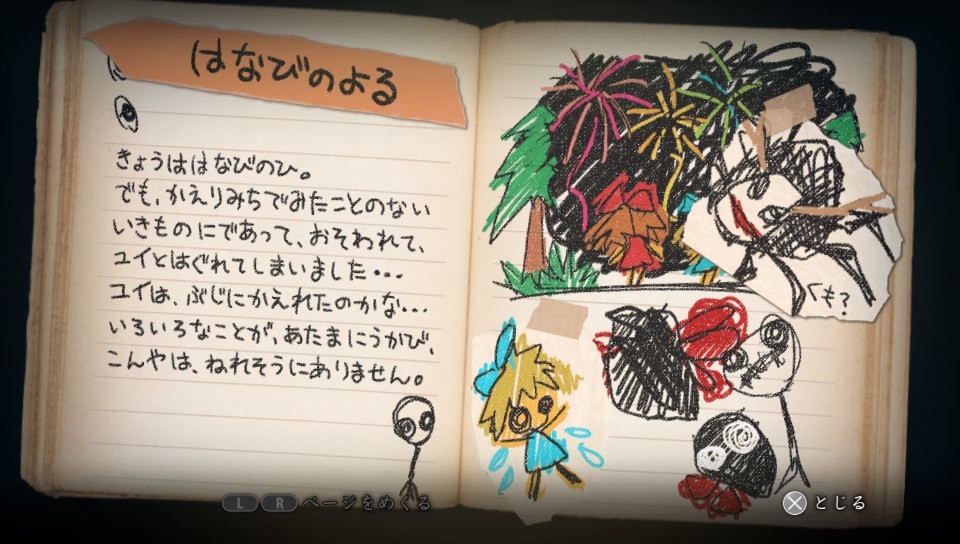 はなびのよる
きょうははなびのひ。
でも、かえりみちでみたことのない
いきものにであって、おそわれて、
ユイとはぐれてしまいました・・・
ユイは、ぶじにかえれたのかな・・・
いろいろなことが、あたまにうかび、
こんやは、ねれそうにありません。
くも?
L R ページをめくる
とじる